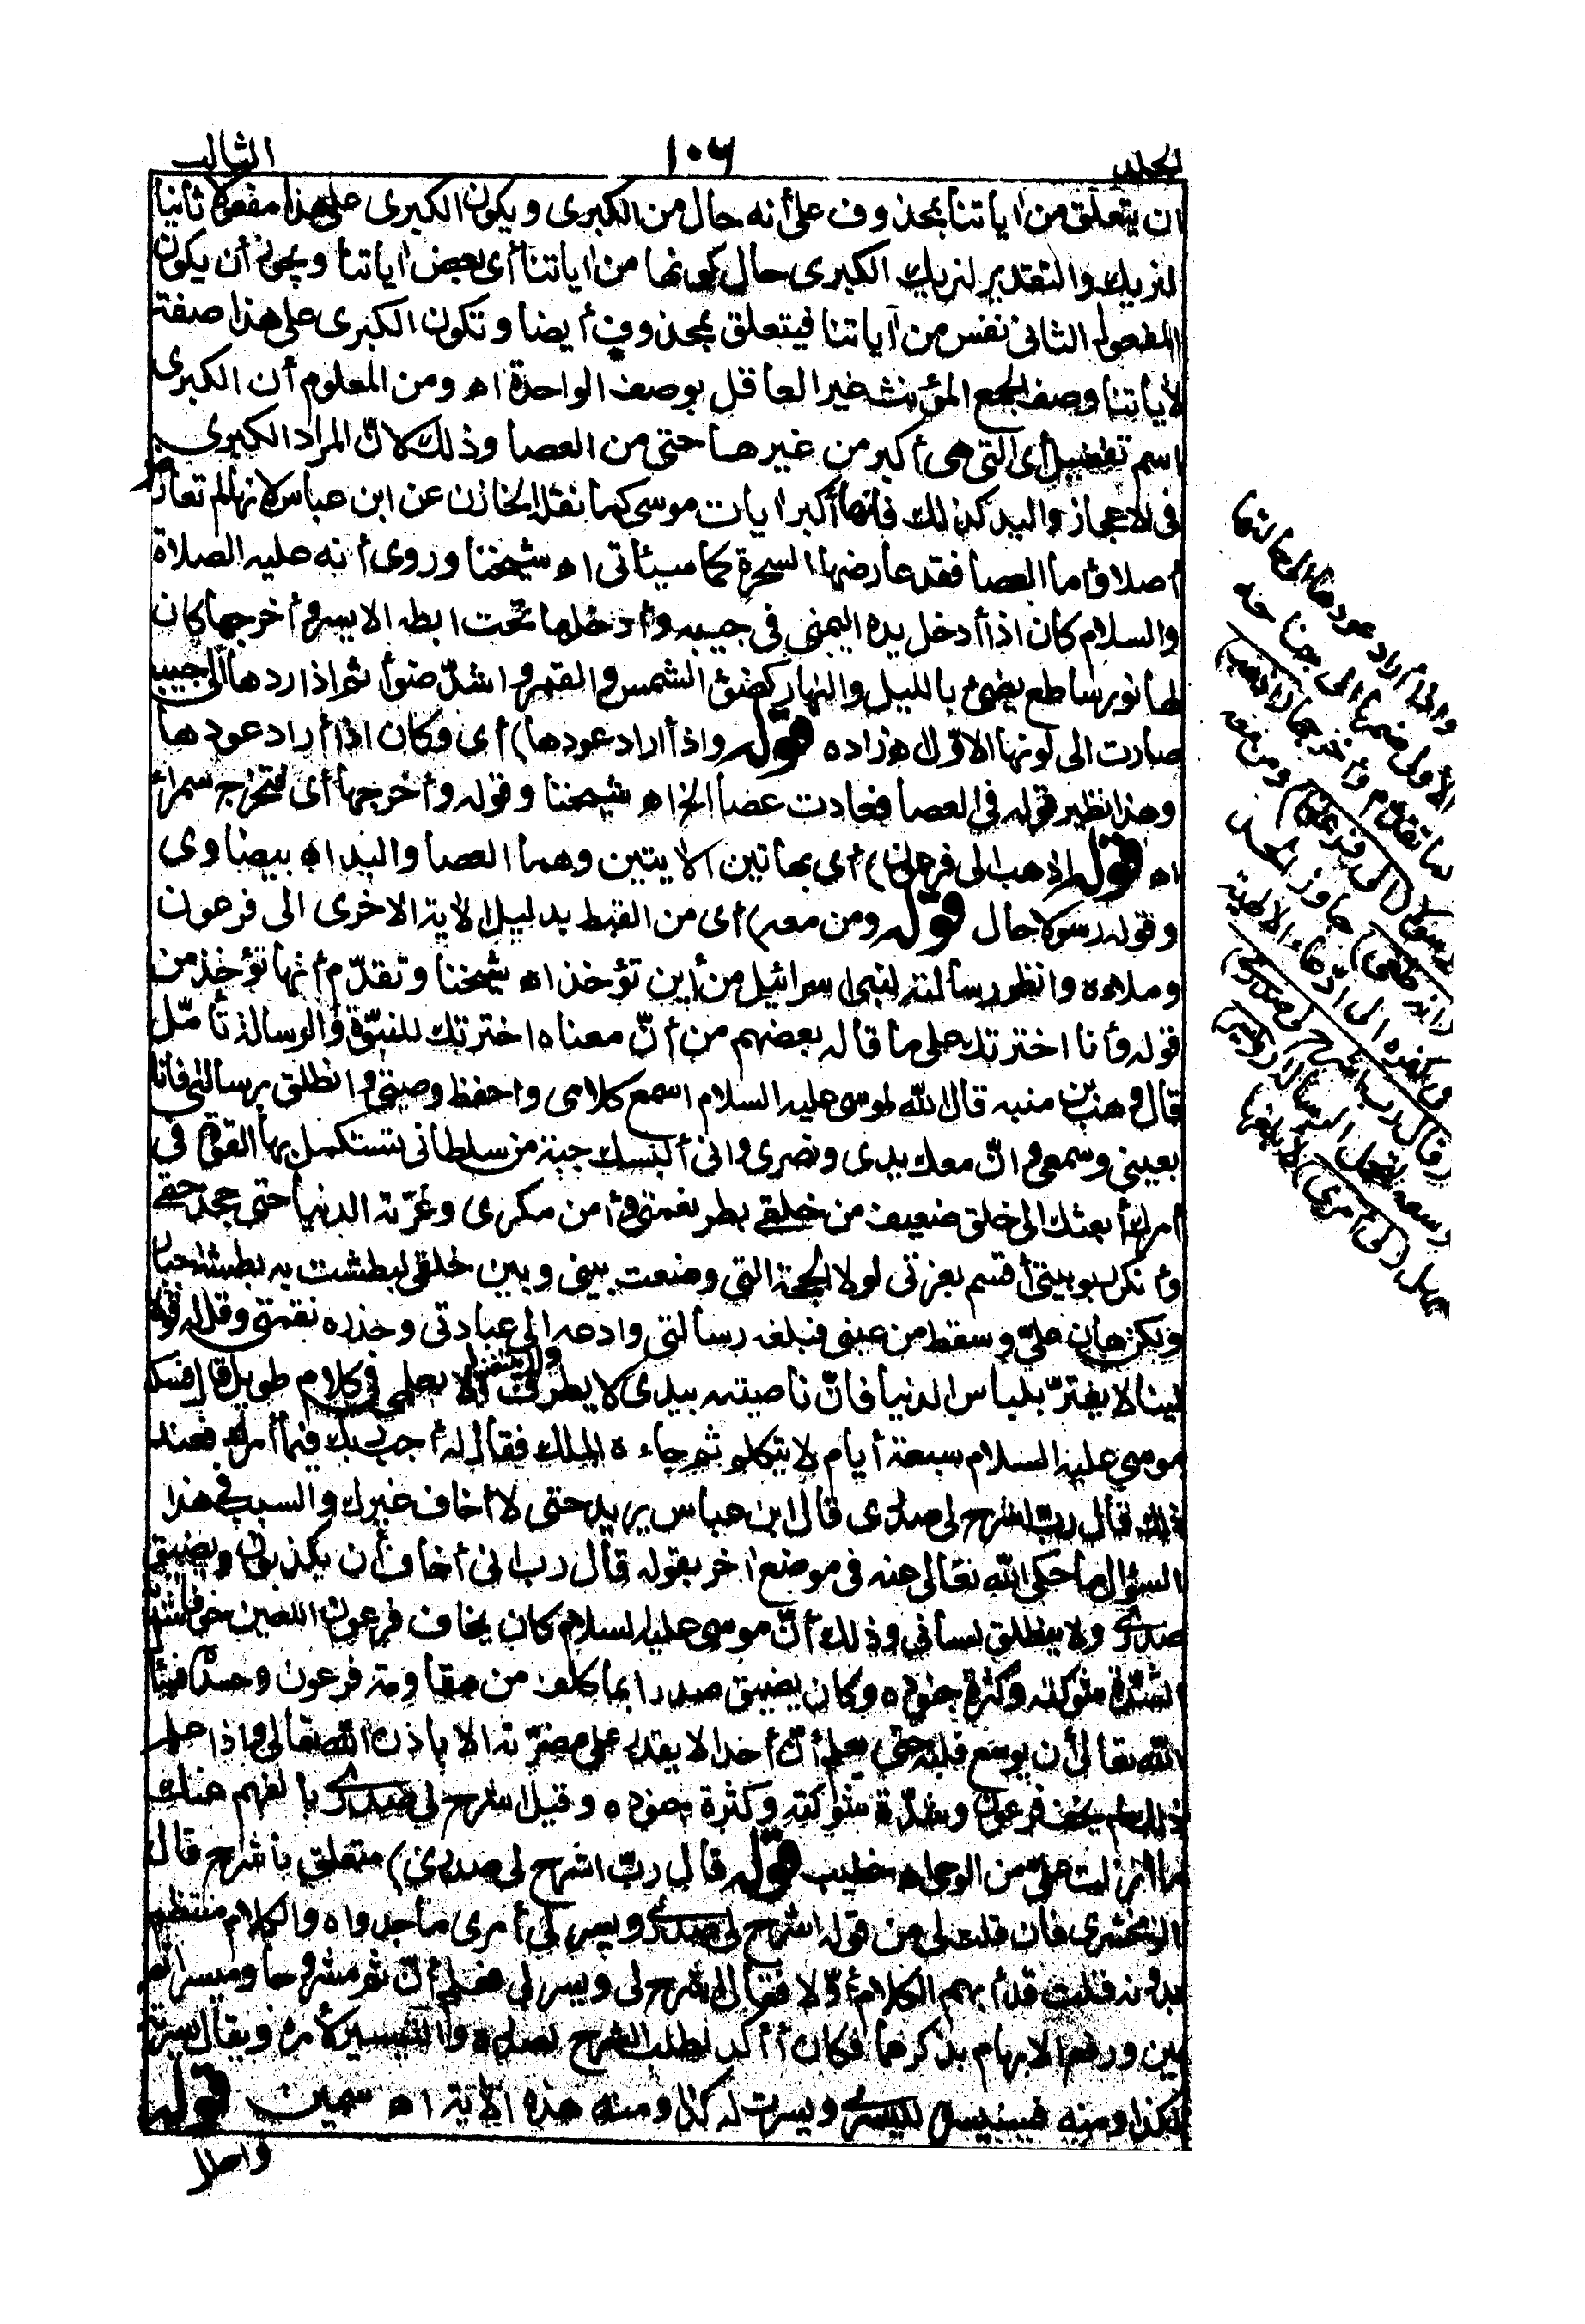 الجلد
١٠٦
الثالث
ان يتعلق من اياتنا بمحذوف على أنه حال من الكبرى ويكون الكبرى على هذا مفعولا ثانيا
لنريك والتقدير لنريك الكبرى حال كونها من اياتنا أى بعض اياتنا ويجوز أن يكون
المفعول الثانى نفس من آياتنا فيتعلق بمحذوف أيضا وتكون الكبرى على هذا صفة
لأياتنا وصف الجمع المؤنث غير العاقل بوصف الواحدة اه ومن المعلوم أن الكبرى
اسم تفضيل أى التى هى أكبر من غيرها حتى من العصا وذلك لانّ المراد الكبرى
فى الاعجاز واليد كذلك فانها أكبر ايات موسى كما نقله الخازن عن ابن عباس لانها لم تعارض
أصلا وأما العصا فقد عارضها السحرة كما سيأتى اه شيخنا وروى أنه عليه الصلاة
والسلام كان اذا أدخل يده اليمنى فى جيبه وأدخلها تحت ابطه الايسر وأخرجها كان
لها نور ساطع يضئ بالليل والنهار كضوء الشمس والقمر واشدّ ضوأ ثم اذا ردها الى جيبه
صارت الى لونها الاول اه زاده قوله واذا اراد عودها) أى وكان اذا أراد عودها
وهذا نظير قوله فى العصا فعادت عصا الخ اه شيخنا وقوله وأخرجها أى لتخرج سمراء
اه قوله اذهب الى فرعون) أى بهاتين الايتين وهما العصا واليد اه بيضاوى
وقوله رسولا حال قوله ومن معه) أى من القبط بدليل الاية الاخرى الى فرعون
وملاءه وانظر رسالته لبنى اسرائيل من أين تؤخذ اه شيخنا وتقدّم أنها تؤخذ من
قوله وأنا اخترتك على ما قاله بعضهم من أنّ معناه اخترتك للنبوّة والرسالة تأمّل
قال وهب بن منبه قال الله لموسى عليه السلام اسمع كلامى واحفظ وصيتى وانطلق برسالتى فانك
بعينى وسمعى وانّ معك يدى ونصرى وانى ألبسك جبة من سلطانى تستكمل بها القوة فى
أمرك أبعثك الى خلق ضعيف من خلقى بطر نعمتى وأمن مكرى وغرّته الدنيا حتى جحد حقى
وأنكر ربوبيتى أقسم بعزتى لولا الحجة التى وضعت بينى وبين خلقى لبطشت به بطشة جبار
ولكن هان علىّ وسقط من عينى فبلغه رسالتى وادعه الى عبادتى وحذره نقمتى وقل له قولا
لينا لا يغترّ بلباس الدنيا فانّ ناصيته بيدى لا يطرف ولا يتنفس الا بعلمى فى كلام طويل قال فسكت
موسى عليه السلام سبعة أيام لا يتكلم ثم جاءه الملك فقال له أجب ربك فيما أمرك فعند
ذلك قال ربّ اشرح لى صدرى قال ابن عباس يريد حتى لا أخاف غيرك والسبب فى هذا
السؤال ما حكى الله تعالى عنه فى موضع اخر بقوله قال رب انى أخاف أن يكذبون ويضيق
صدرى ولا ينطلق لسانى وذلك أنّ موسى عليه السلام كان يخاف فرعون اللعين خوفا شديدا
لشدّة شوكته وكثرة جنوده وكان يضيق صدرا بما كلف من مقاومة فرعون وحده فسأل
الله تعالى أن يوسع قلبه حتى يعلم أنّ أحدا لا يقدر على مضرّته الا باذن الله تعالى واذا علم
ذلك لم يخف فرعون وشدّة شوكته وكثرة جنوده وقيل اشرح لى صدرى بالفهم عنك
ما انزلت علىّ من الوحى اه خطيب قوله قال ربّ اشرح لى صدرى) متعلق باشرح قال
الزمخشرى فان قلت لى من قوله اشرح لى صدرى ويسر لى أمرى ما جدواه والكلام منتظم
بدونه قلت قد أبهم الكلام أوّلا فقال اشرح لى ويسر لى فعلم أنّ ثم مشروحا وميسرا ثم
بين ورفع الابهام بذكرهما فكان أأكد لطلب الشرح لصدره والتيسير لأمره ويقال يسرته
لكذا ومنه فسنيسره لليسرى ويسرت له كذا ومنه هذه الاية اه سمين قوله
واحلل
واذا أراد عودها الى حالتها
الأولى ضمها الى جناحه
كما تقدّم وأخرجها (اذهب)
رسولا (الى فرعون) ومن معه
(انه طغى) جاوز الحد
فى كفره الى ادّعاء الالهية
(قال رب اشرح لى صدرى)
وسعه لتحمل الرسالة (ويسر)
سهل (لى أمرى) لأبلغها